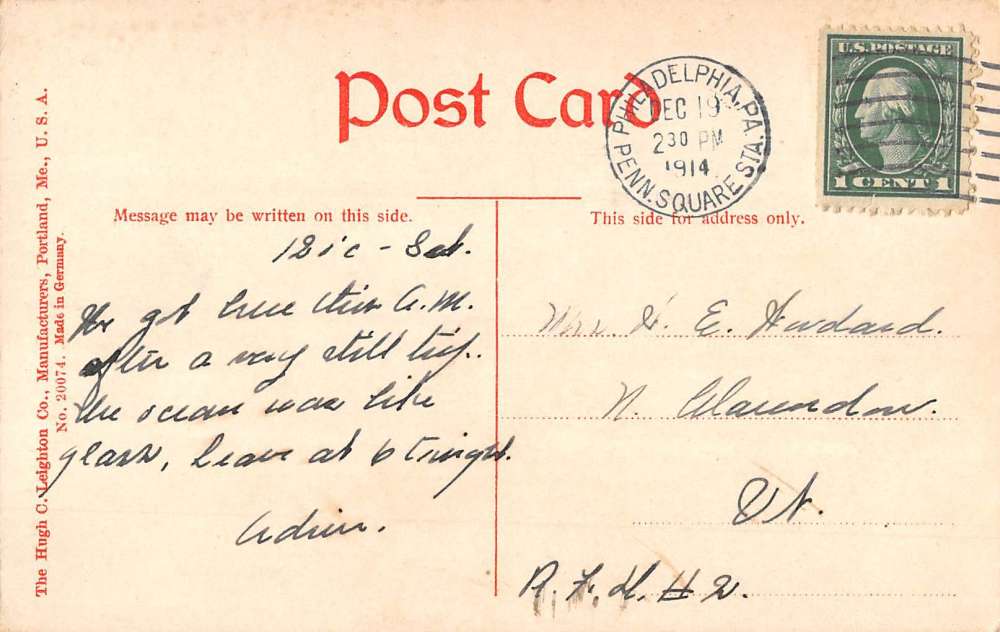 Post Card
PHILADELPHIA, PA.
DEC 19
2 30 PM
1914
PENN. SQUARE STA.
U.S. POSTAGE
1 CENT 1
The Hugh C. Leighton Co., Manufacturers, Portland, Me., U. S. A.
No. 20074. Made in Germany.
Message may be written on this side.
This side for address only.
- Sat.
We got here this A.M.
after a very still trip.
the ocean was like
glass, leave at 6 tonight.
H. E.
N. Clarendon.
Vt.
R. F. D. # 2.